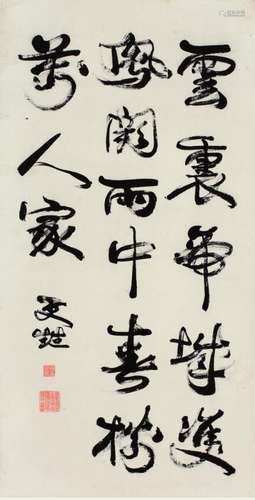 雲裏帝城雙
鳳闕雨中春樹
萬人家